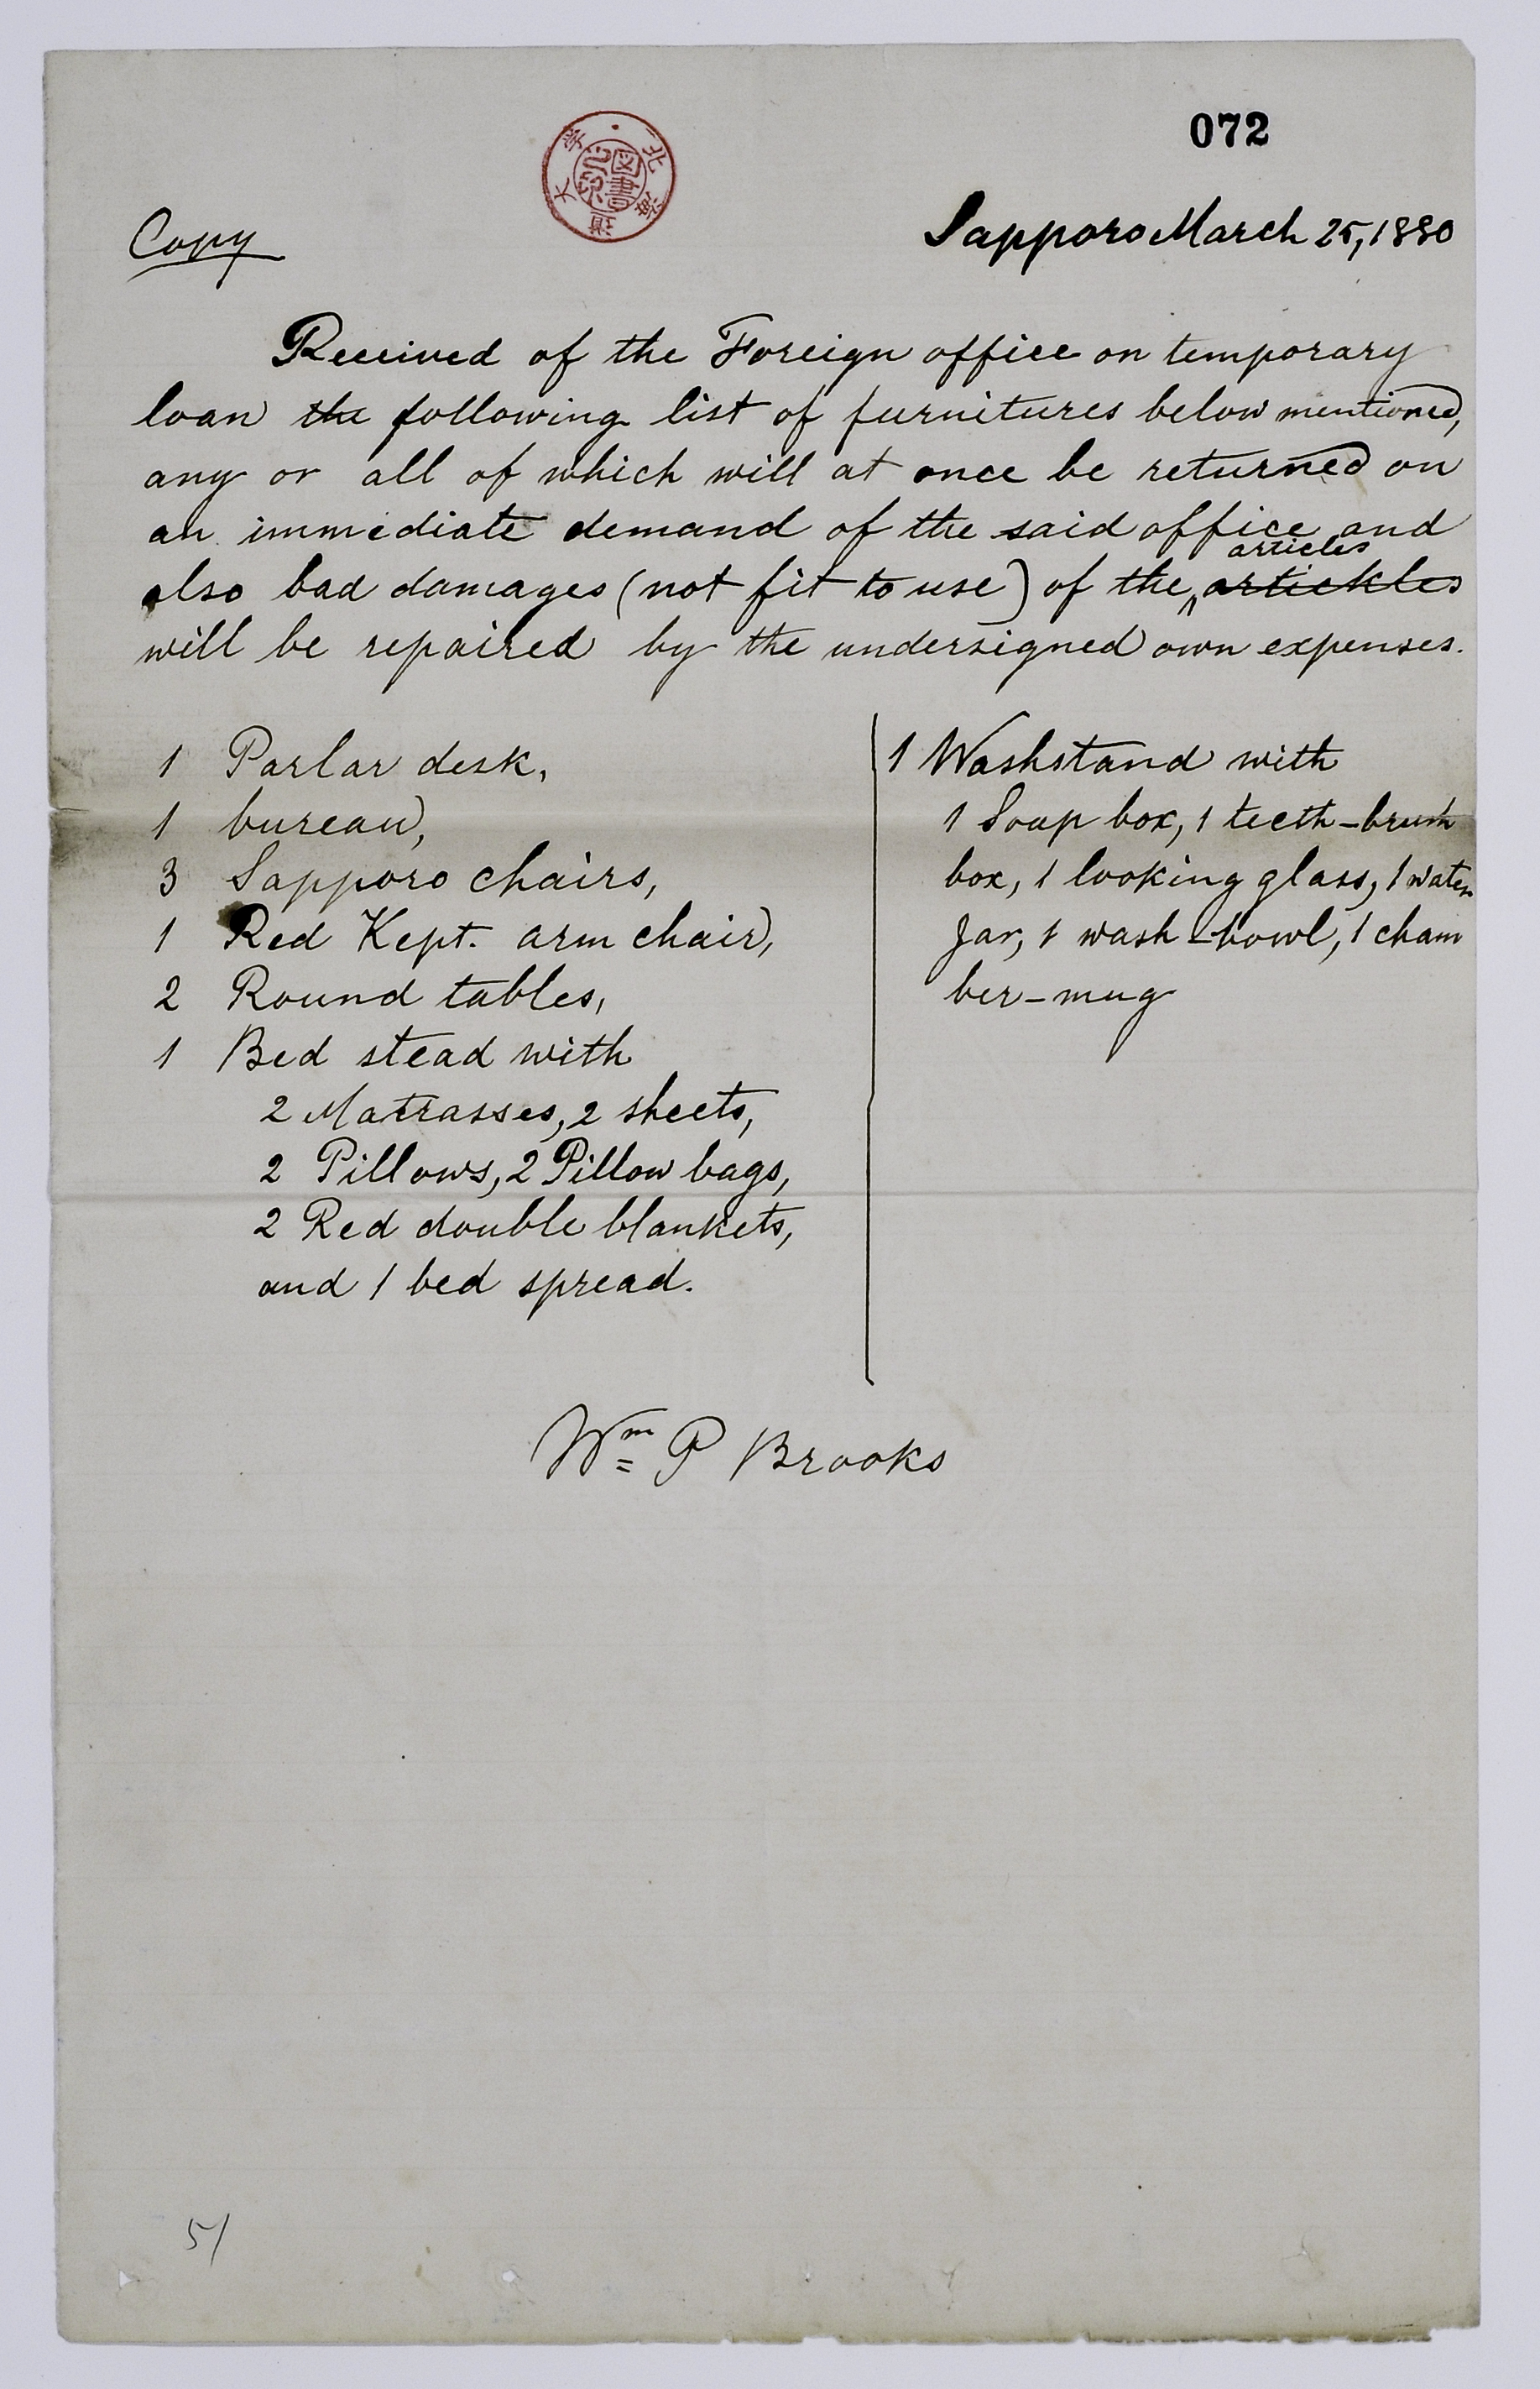 072
北海道大学
図書
Copy
Sapporo March 25, 1880
Received of the Foreign office on temporary
loan the following list of furnitures below mentioned,
any or all of which will at once be returned on
an immediate demand of the said office and
also bad damages (not fit to use) of the articles artickles
will be repaired by the undersigned own expenses.
1 Parlar desk,
1 bureau,
3 Sapporo chairs,
1 Red Kept. arm chair,
2 Round tables,
1 Bed stead with
2 Matrasses, 2 sheets,
2 Pillows, 2 Pillow bags,
2 Red double blankets,
and 1 bed spread.
1 Washstand with
1 Soap box, 1 teeth-brush
box, 1 looking glass, 1 water
Jar, 1 wash-bowl, 1 cham
ber-mug
Wm P Brooks
51